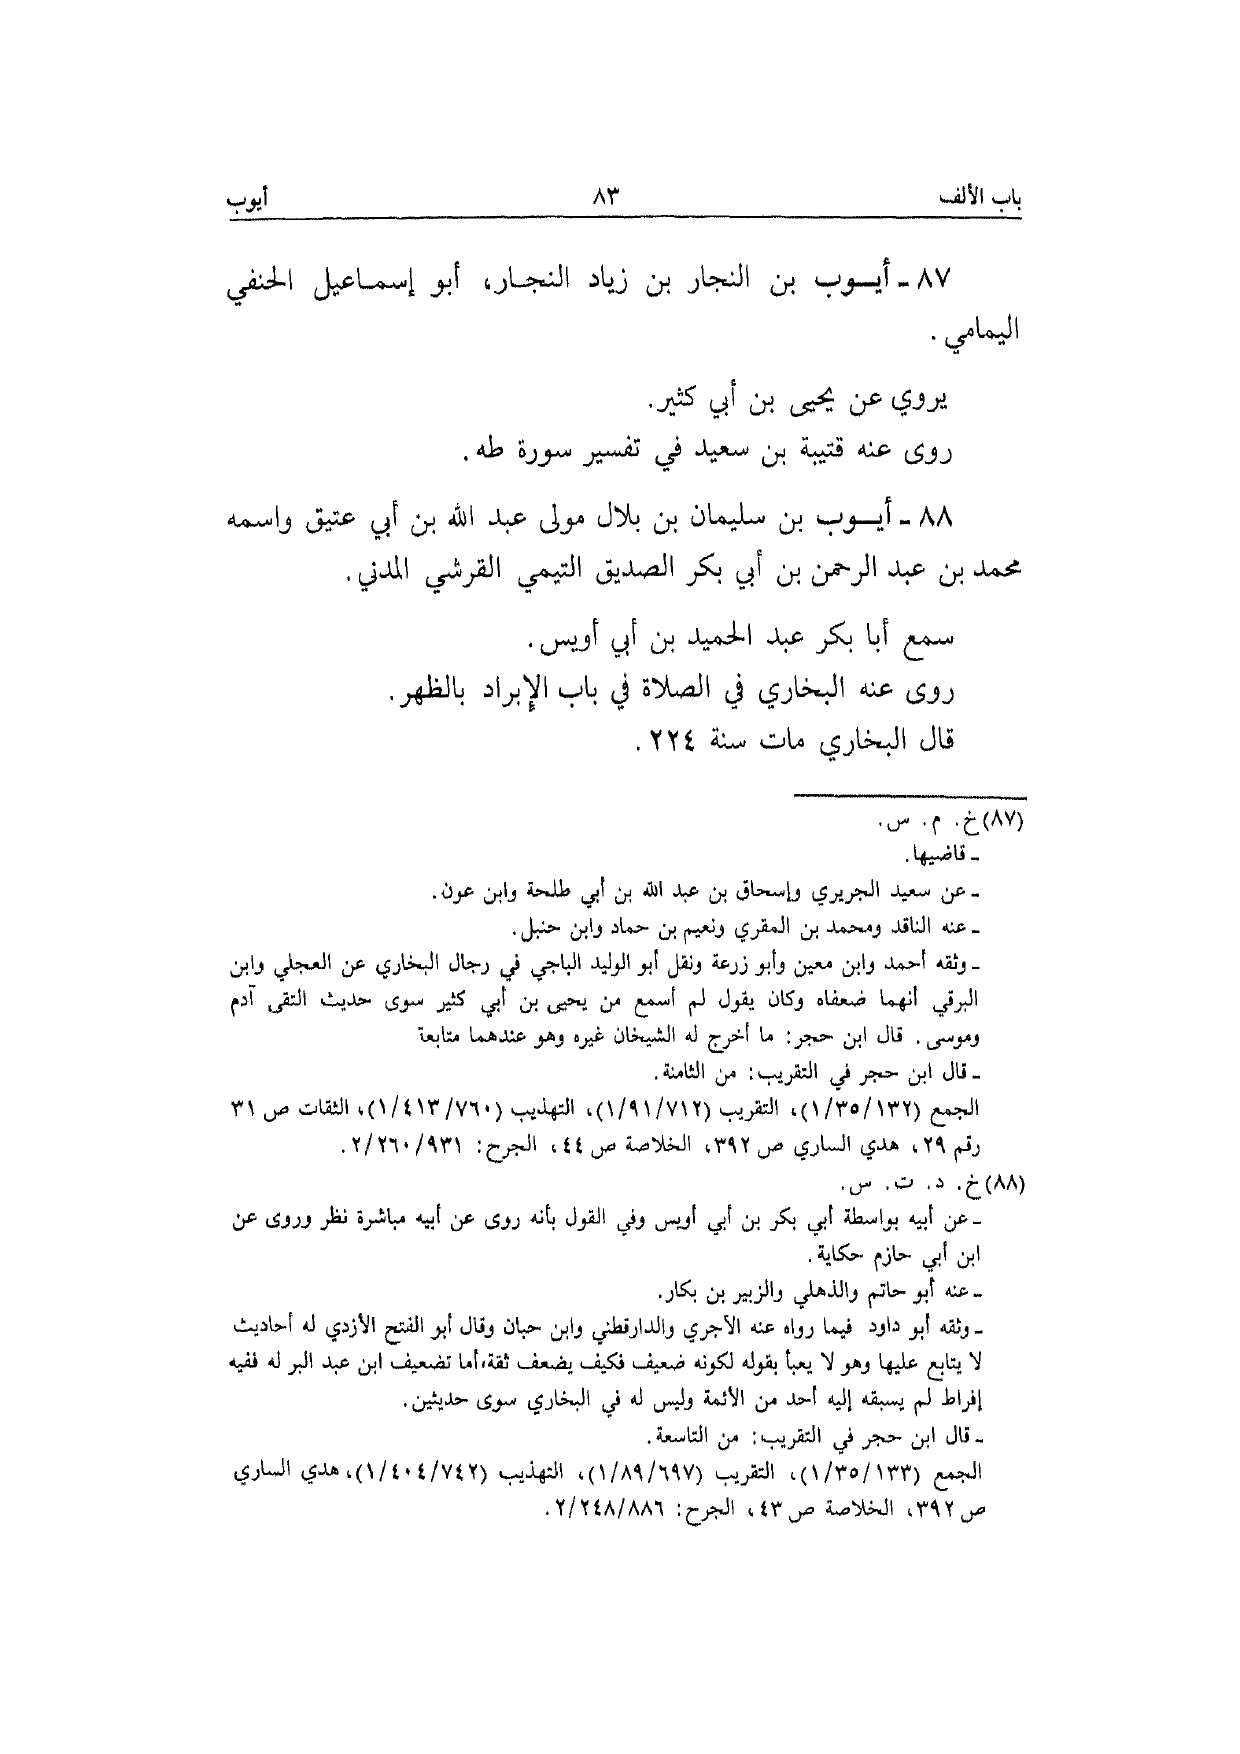 باب الألف ٨٣ أيوب
٨٧ ـ أيـوب بن النجار بن زياد النجار، أبو إسماعيل الحنفي
اليمامي .
يروي عن يحيى بن أبي كثير.
روى عنه قتيبة بن سعيد في تفسير سورة طه .
٨٨ ـ أيـوب بن سليمان بن بلال مولى عبد الله بن أبي عتيق واسمه
محمد بن عبد الرحمن بن أبي بكر الصديق التيمي القرشي المدني .
سمع أبا بكر عبد الحميد بن أبي أويس .
روى عنه البخاري في الصلاة في باب الإبراد بالظهر .
قال البخاري مات سنة ٢٢٤ .
(٨٧) خ. م. س.
ـ قاضيها.
ـ عن سعيد الجريري وإسحاق بن عبد الله بن أبي طلحة وابن عون.
ـ عنه الناقد ومحمد بن المقري ونعيم بن حماد وابن حنبل.
ـ وثقه أحمد وابن معين وأبو زرعة ونقل أبو الوليد الباجي في رجال البخاري عن العجلي وابن
البرقي أنهما ضعفاه وكان يقول لم أسمع من يحيى بن أبي كثير سوى حديث التقى آدم
وموسى. قال ابن حجر: ما أخرج له الشيخان غيره وهو عندهما متابعة
ـ قال ابن حجر في التقريب: من الثامنة.
الجمع (١/٣٥/١٣٢)، التقريب (١/٩١/٧١٢)، التهذيب (١/٤١٣/٧٦٠)، الثقات ص ٣١
رقم ٢٩، هدي الساري ص ٣٩٢، الخلاصة ص ٤٤، الجرح: ٢/٢٦٠/٩٣١.
(٨٨) خ. د. ت. س.
ـ عن أبيه بواسطة أبي بكر بن أبي أويس وفي القول بأنه روى عن أبيه مباشرة نظر وروى عن
ابن أبي حازم حكاية.
ـ عنه أبو حاتم والذهلي والزبير بن بكار.
ـ وثقه أبو داود فيما رواه عنه الآجري والدارقطني وابن حبان وقال أبو الفتح الأزدي له أحاديث
لا يتابع عليها وهو لا يعبأ بقوله لكونه ضعيف فكيف يضعف ثقة، أما تضعيف ابن عبد البر له ففيه
إفراط لم يسبقه إليه أحد من الأئمة وليس له في البخاري سوى حديثين.
ـ قال ابن حجر في التقريب: من التاسعة.
الجمع (١/٣٥/١٣٣)، التقريب (١/٨٩/٦٩٧)، التهذيب (١/٤٠٤/٧٤٢)، هدي الساري
ص ٣٩٢، الخلاصة ص ٤٣، الجرح: ٢/٢٤٨/٨٨٦.